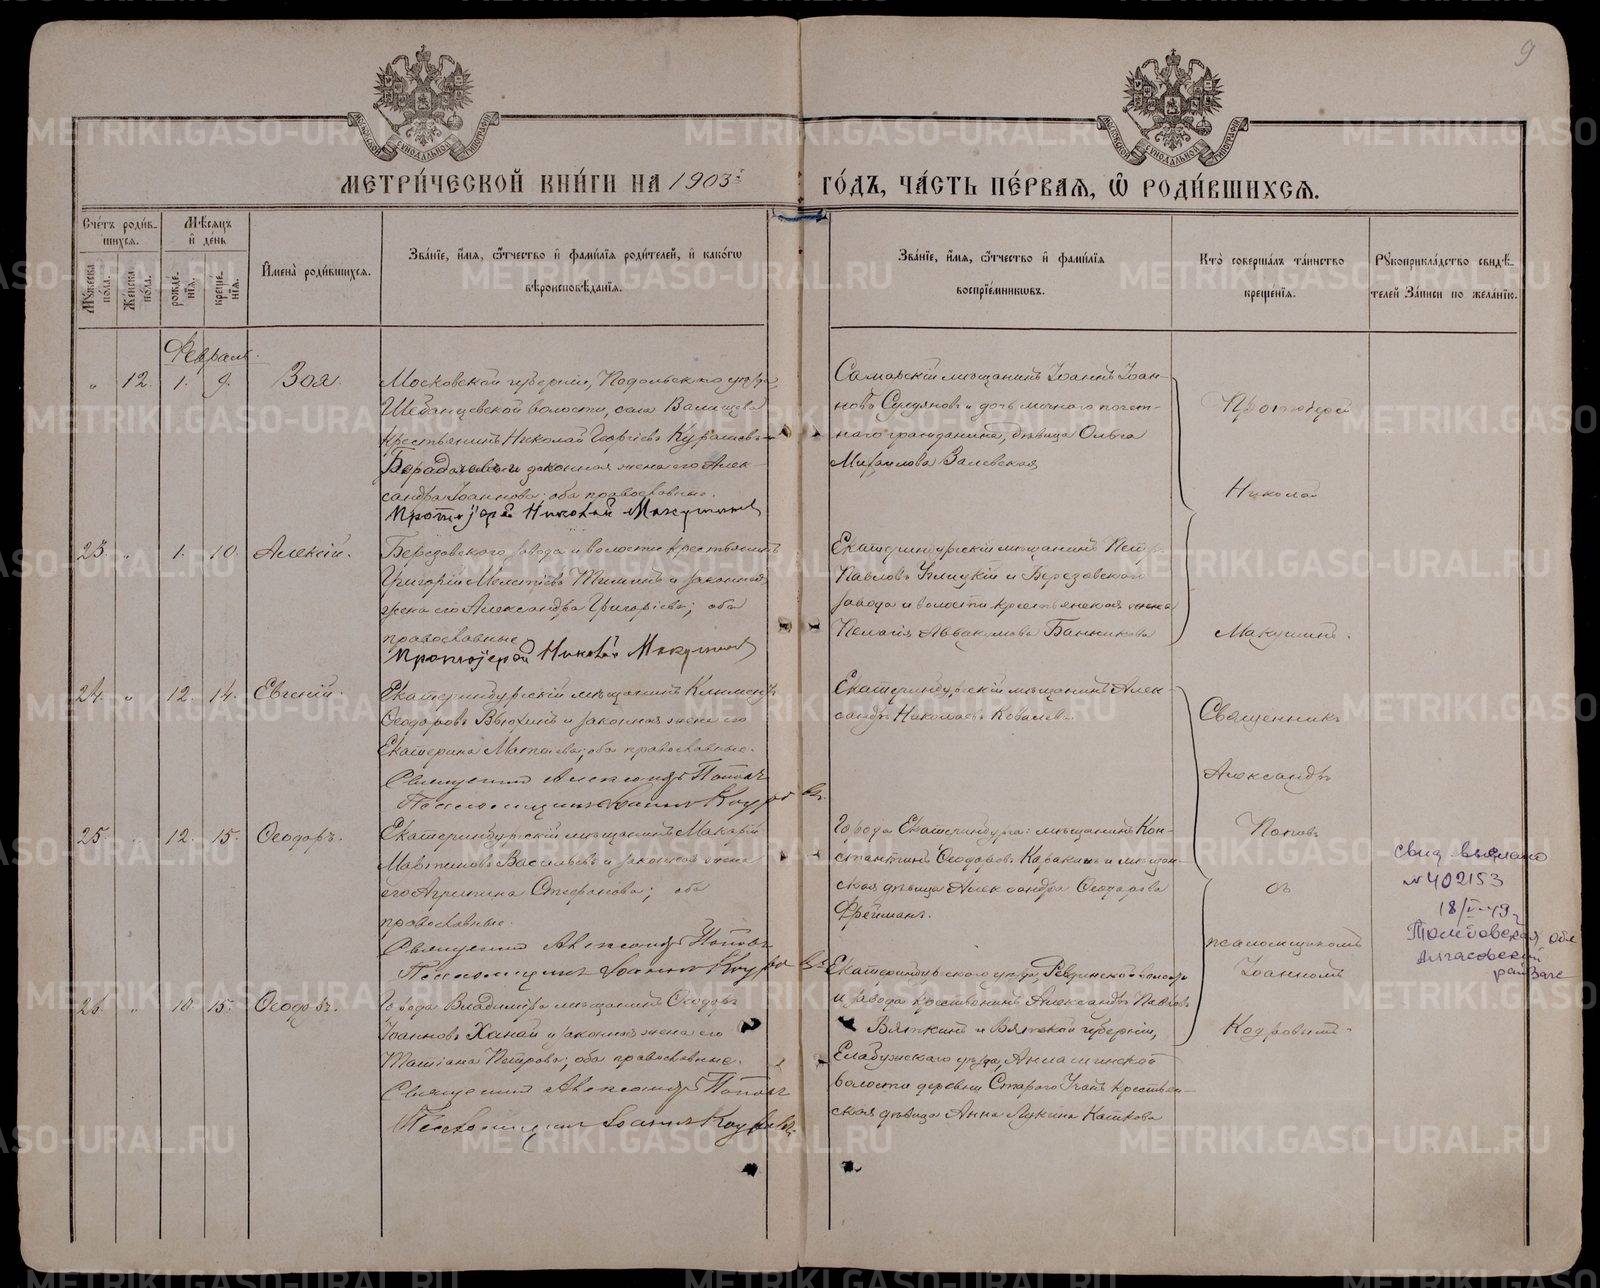 9
МЕТРИ́ЧЕСКОЙ КНИ́ГИ НА 1903й
ГО́ДЪ, ЧА́СТЬ ПЕ́РВАѦ, Ѡ҆ РОДИ́ВШИХСѦ.
Сче́тъ роди́в-
шихсѧ.
Мѣ́сѧцъ
и҆ де́нь
Мꙋ́жеска
по́ла.
Же́нска
по́ла.
рожде́-
нїѧ.
креще́-
нїѧ.
И҆мена̀ роди́вшихсѧ.
Зва́нїе, и҆́мѧ, ѻ҆́тчество и҆ фами́лїѧ роди́телей, и҆ како́гѡ
вѣроисповѣ́данїѧ.
Зва́нїе, и҆́мѧ, ѻ҆́тчество и҆ фами́лїѧ
воспрїе́мникѡвъ.
Кто̀ соверша́лъ та́инство
креще́нїѧ.
Рꙋкоприкла́дство свидѣ́-
телей за́писи по жела́нїю.
Февраль.
" 12. 1. 9. Зоя.
Московской губерніи, Подольскаго уѣзда,
Шебанцевской волости, села Валищева
крестьянинъ Николай Георгіевъ
и законная жена его Алек-
сандра Іоаннова; оба православные.
Протоіерей Николай Макушинъ
Самарскій мѣщанинъ Іоаннъ Іоан-
новъ и дочь личнаго почет-
наго гражданина, дѣвица Ольга
Михаилова Залевская
Протоіерей
Николай
Макушинъ.
23. " 1. 10. Алексій.
Березовскаго завода и волости крестьянинъ
Григорій Мелетіевъ и законная
жена его Александра Григоріева; оба
православные
Протоіерей Николай Макушинъ
Екатеринбургскій мѣщанинъ Петръ
Павловъ и Березовскаго
завода и волости крестьянская жена
Пелагія Аввакумова Банникова
24. " 12. 14. Евгеній.
Екатеринбургскій мѣщанинъ Климентъ
Ѳеодоровъ Вьюхинъ и законная жена его
Екатерина Матѳіева; оба православные.
Священникъ Александръ Поповъ
Псаломщикъ Іоаннъ Кодровъ
Екатеринбургскій мѣщанинъ Алек-
сандръ Николаевъ Ковалевъ.
Священникъ
Александръ
Поповъ
съ
псаломщикомъ
Іоанномъ
Кодровымъ.
25. " 12. 15. Ѳеодоръ.
Екатеринбургскій мѣщанинъ Макарій
Васильевъ и законная жена
его Агрипина Стефанова; оба
православные.
Священникъ Александръ Поповъ
Псаломщикъ Іоаннъ Кодровъ
Города Екатеринбурга: мѣщанинъ Кон-
стантинъ Ѳеодоровъ Каракинъ и мѣщан-
ская дѣвица Александра Ѳеодорова
Фрейманъ.
свид. выслано
№ 402153
18/V-49г
Тамбовская обл
Алгасовский
райзагс
26. " 10. 15. Ѳеодоръ.
Города Владиміра мѣщанинъ Ѳеодоръ
Іоанновъ и законная жена его
Татіана Петрова; оба православные.
Священникъ Александръ Поповъ
Псаломщикъ Іоаннъ Кодровъ
Екатеринбургскаго уѣзда, Ревдинской волости
и завода крестьянинъ Александръ Павловъ
Вяткинъ и Вятской губерніи,
Елабужскаго уѣзда,
волости деревни Стараго крестьян-
ская дѣвица Анна Лукина Каткова
METRIKI.GASO-URAL.RU